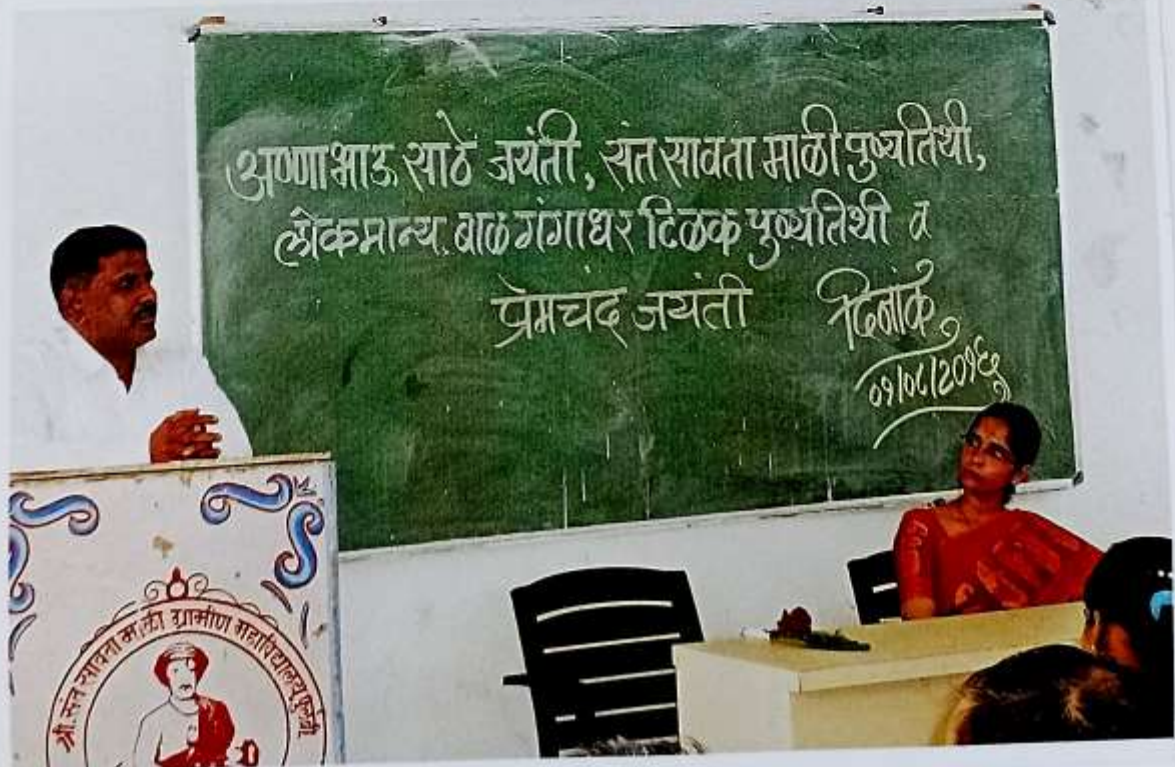 अण्णाभाऊ साठे जयंती, संत सावता माळी पुण्यतिथी,
लोकमान्य बाळ गंगाधर टिळक पुण्यतिथी व
प्रेमचंद जयंती दिनांक
०१/०८/२०१६
श्री. संत सावता माळी ग्रामीण महाविद्यालय फुलंब्री